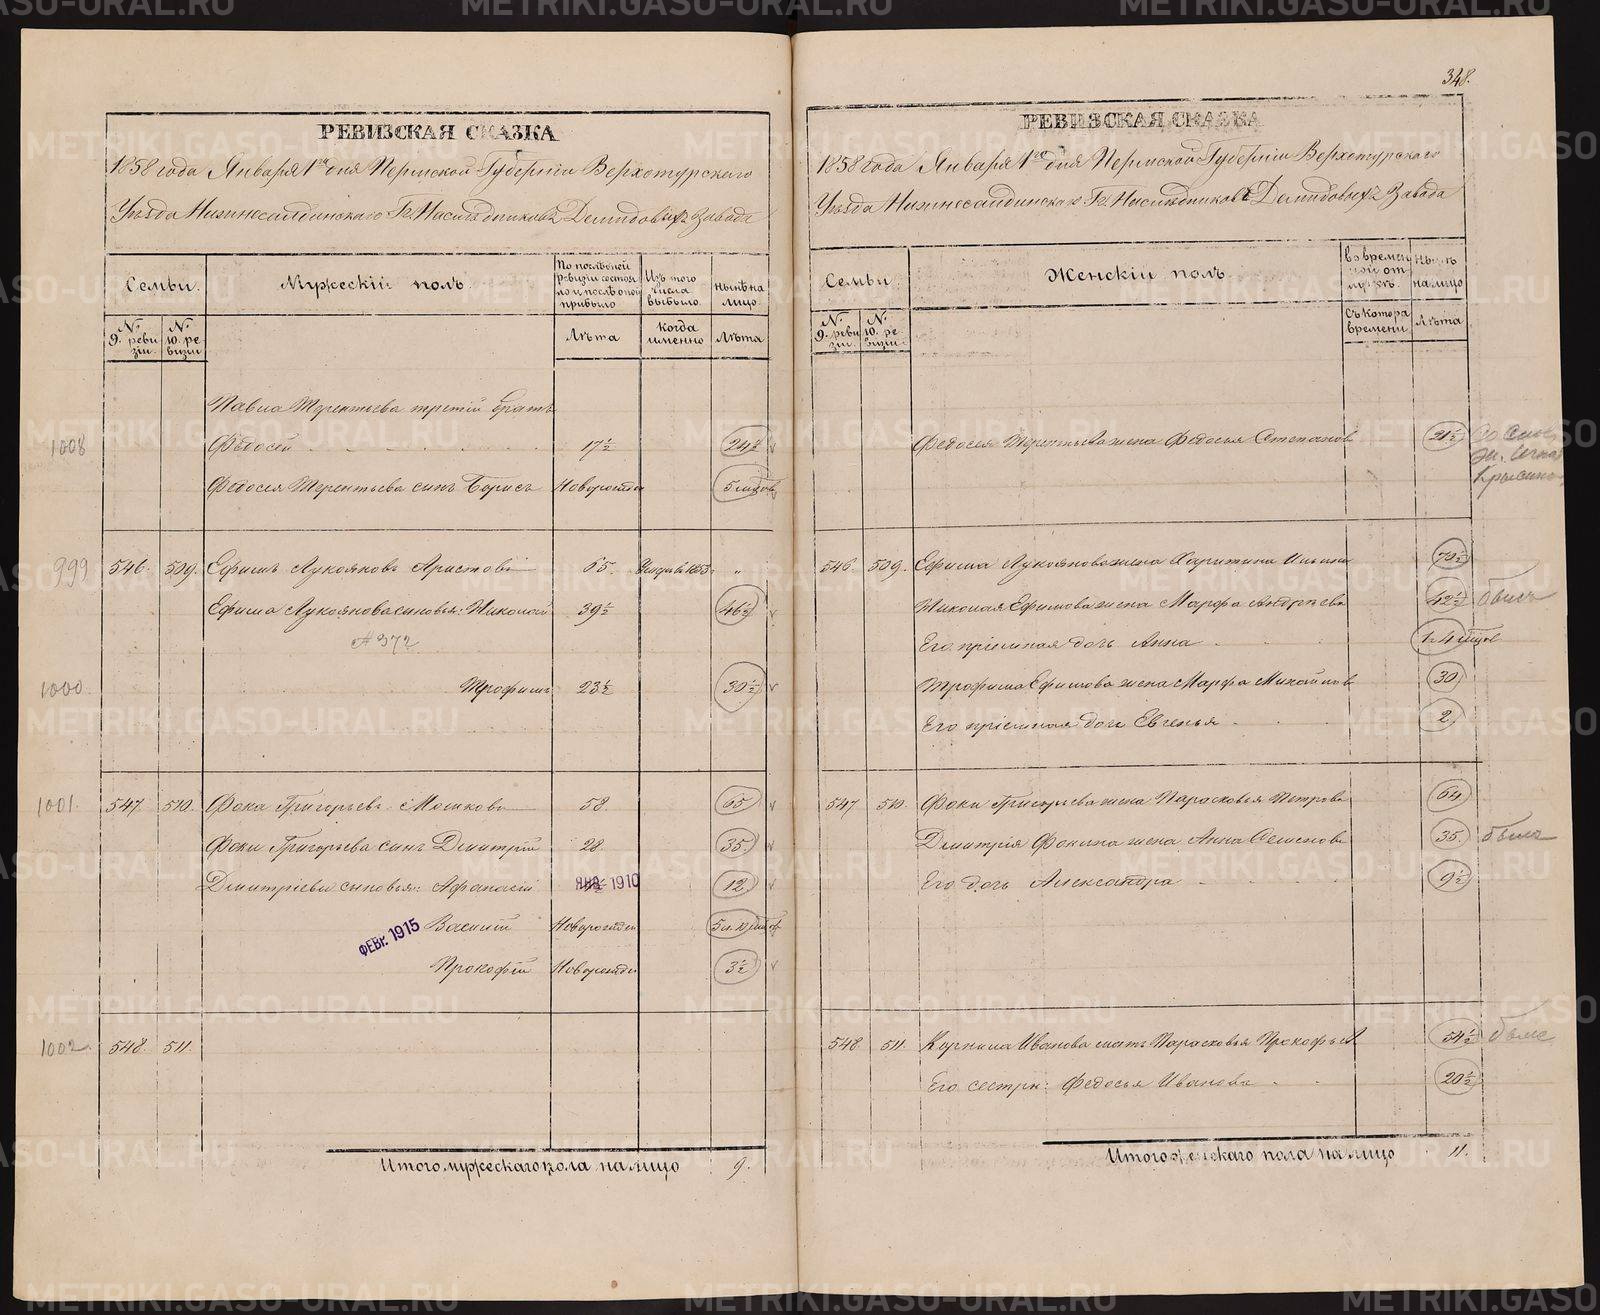 348.
РЕВИЗСКАЯ СКАЗКА
1858 года Января 1го дня Пермской Губернiи Верхотурскаго
Уѣзда Нижнесалдинскаго Гг. Наслѣдниковъ Демидовыхъ Завода
Семьи.
Мужескiй полъ.
По послѣдней ревизiи состояло и послѣ оной прибыло
Изъ того числа выбыло
Нынѣ на лицо
№ 9. ревизiи.
№ 10. ревизiи
Лѣта
Когда именно
Лѣта
Павла Терентьева третiй братъ
1008 Федосей 17½ 24½
Федосея Терентьева сынъ Борисъ Новорожден 5 мѣсяцов
999 546. 509. Ефимъ Лукояновъ Аристовъ 65. Умеръ въ 1853. „
Ефима Лукоянова сыновья: Николай 39½ 46½
№ 372
1000 Трофимъ 23½ 30½
1001. 547. 510. Фока Григорьевъ Мошковъ 58. 65
Фоки Григорьева сынъ Дмитрiй 28. 35.
Дмитрiевы сыновья: Афанасiй ЯНВ 1910 12
ФЕВР. 1915 Василiй Новорожден
Прокофiй Новорожден 3½
1002. 548. 511.
Итого мужескаго пола на лицо 9.
РЕВИЗСКАЯ СКАЗКА
1858 года Января 1го дня Пермской Губернiи Верхотурскаго
Уѣзда Нижнесалдинскаго Гг. Наслѣдниковъ Демидовыхъ Завода
Семьи.
Женскiй полъ.
Во временной отлучкѣ.
Нынѣ на лицо
№ 9. ревизiи.
№ 10. ревизiи.
Съ котора времени
Лѣта
Федосея Терентьева жена Федосья Степанов 21½
546. 509. Ефима Лукоянова жена Харитина Ильина 70½
Николая Ефимова жена Марфа Андреева 42½
Его прiемная дочь Анна
Трофима Ефимова жена Марфа Михайлов 30
Его прiемная дочь Евгенья 2
547 510. Фоки Григорьева жена Парасковья Петрова 64
Дмитрiя Фокина жена Анна Семенова 35.
Его дочь Александра 9½
548 511. Карпила Иванова мать Парасковья Прокофьев 54½
Его сестры: Федосья Иванова 20½
Итого женскаго пола на лицо 11.
METRIKI.GASO-URAL.RU